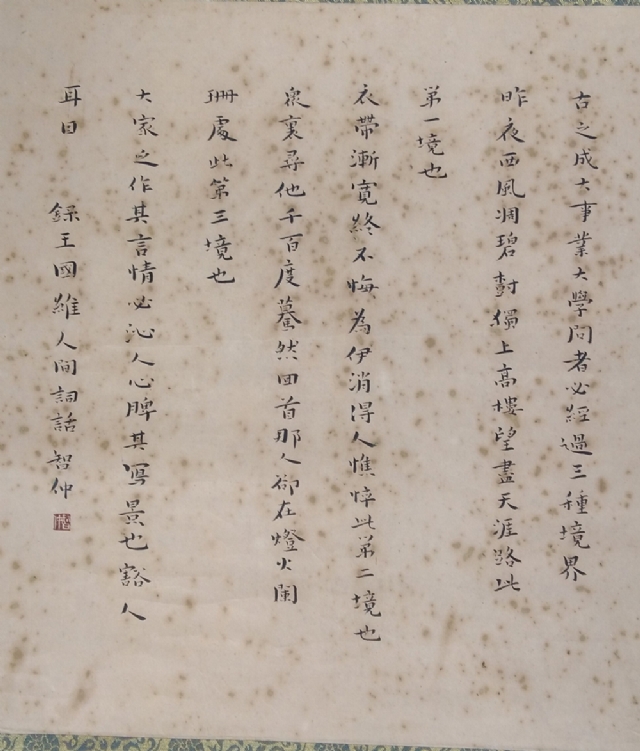 古之成大事業大學問者必經過三種境界
昨夜西風凋碧樹獨上高樓望盡天涯路此
第一境也
衣帶漸寬終不悔為伊消得人憔悴此第二境也
衆裏尋他千百度驀然回首那人卻在燈火闌
珊處此第三境也
大家之作其言情必沁人心脾其寫景也豁人
耳目 錄王國維人間詞話 智仲